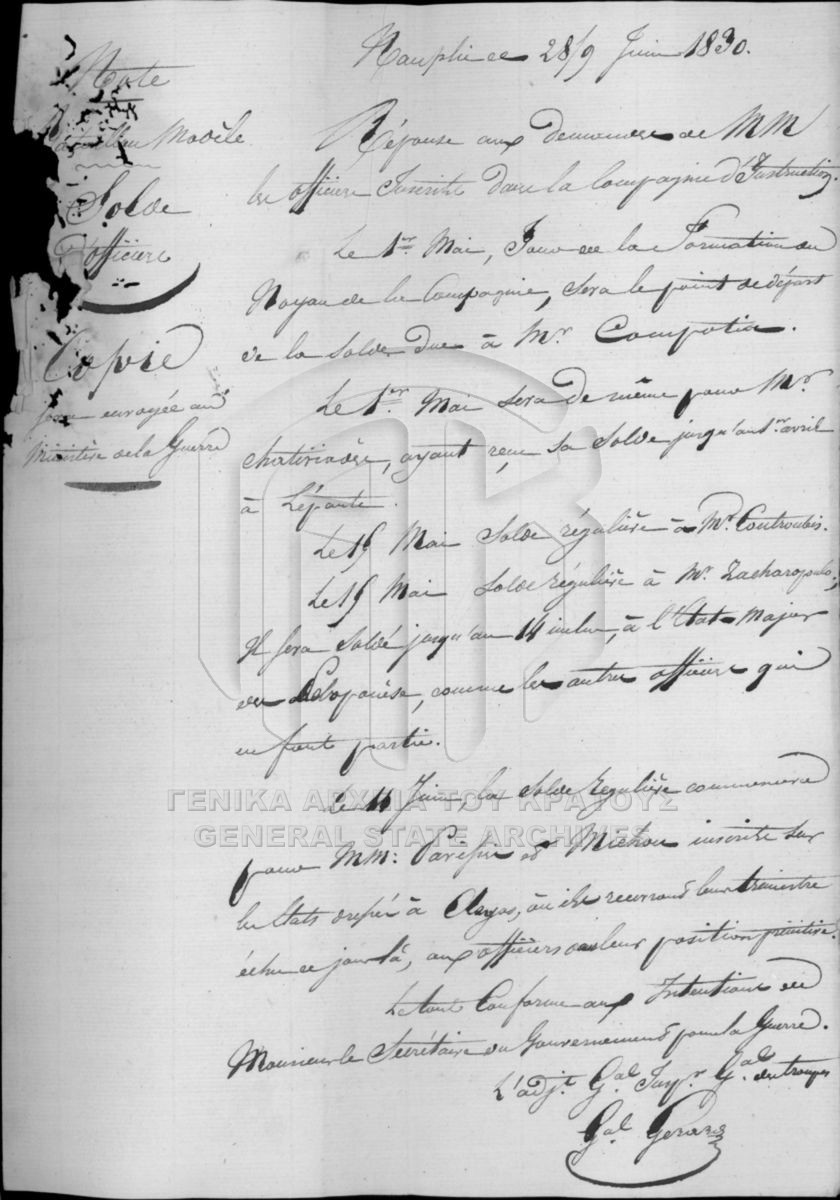 Nauplie ce 28/9 Juin 1830.
Note
Bataillon Modèle
Solde
d'officiers
Copie
sera envoyée au
Ministère de la Guerre
Réponse aux demandes de MM
les officiers Inscrits dans la Compagnie d'Instruction.
Le 1er Mai, Jour de la Formation du
Noyau de la Compagnie, sera le point de départ
de la solde due à Mr
Le 1er Mai sera de même pour Mr
ayant reçu sa solde jusqu'au 1er avril
à Lépante.
Le 15 Mai solde régulière à Mr Coutroubis.
Le 15 Mai solde régulière à Mr Zacharopoulo,
Il sera soldé jusqu'au 14 inclus, à l'Etat-Major
du Péloponèse, comme les autres officiers qui
en font partie.
Le 11 Juin, la solde régulière commencera
pour MM: et Michou inscrits sur
les Etats à Argos, où ils recevront leur trimestre
échu ce jour là, aux officiers dans leur position primitive.
Le tout Conforme aux Intentions de
Monsieur le Secrétaire du Gouvernement pour la Guerre.
L'adjt Gal Inspr Gal des troupes
Gal Gerard
ΓΕΝΙΚΑ ΑΡΧΕΙΑ ΤΟΥ ΚΡΑΤΟΥΣ
GENERAL STATE ARCHIVES